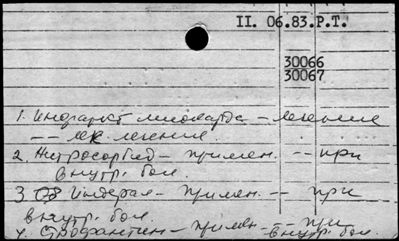 II. 06.83.P.T.
30066
30067
1. Инфаркт миокарда – лечение
-- лек. лечение.
2. Нитросорбид – примен. -- при
внутр. бол.
3. Индерал – примен. -- при
внутр. бол.
4. Строфантин – примен. -- при
внутр. бол.